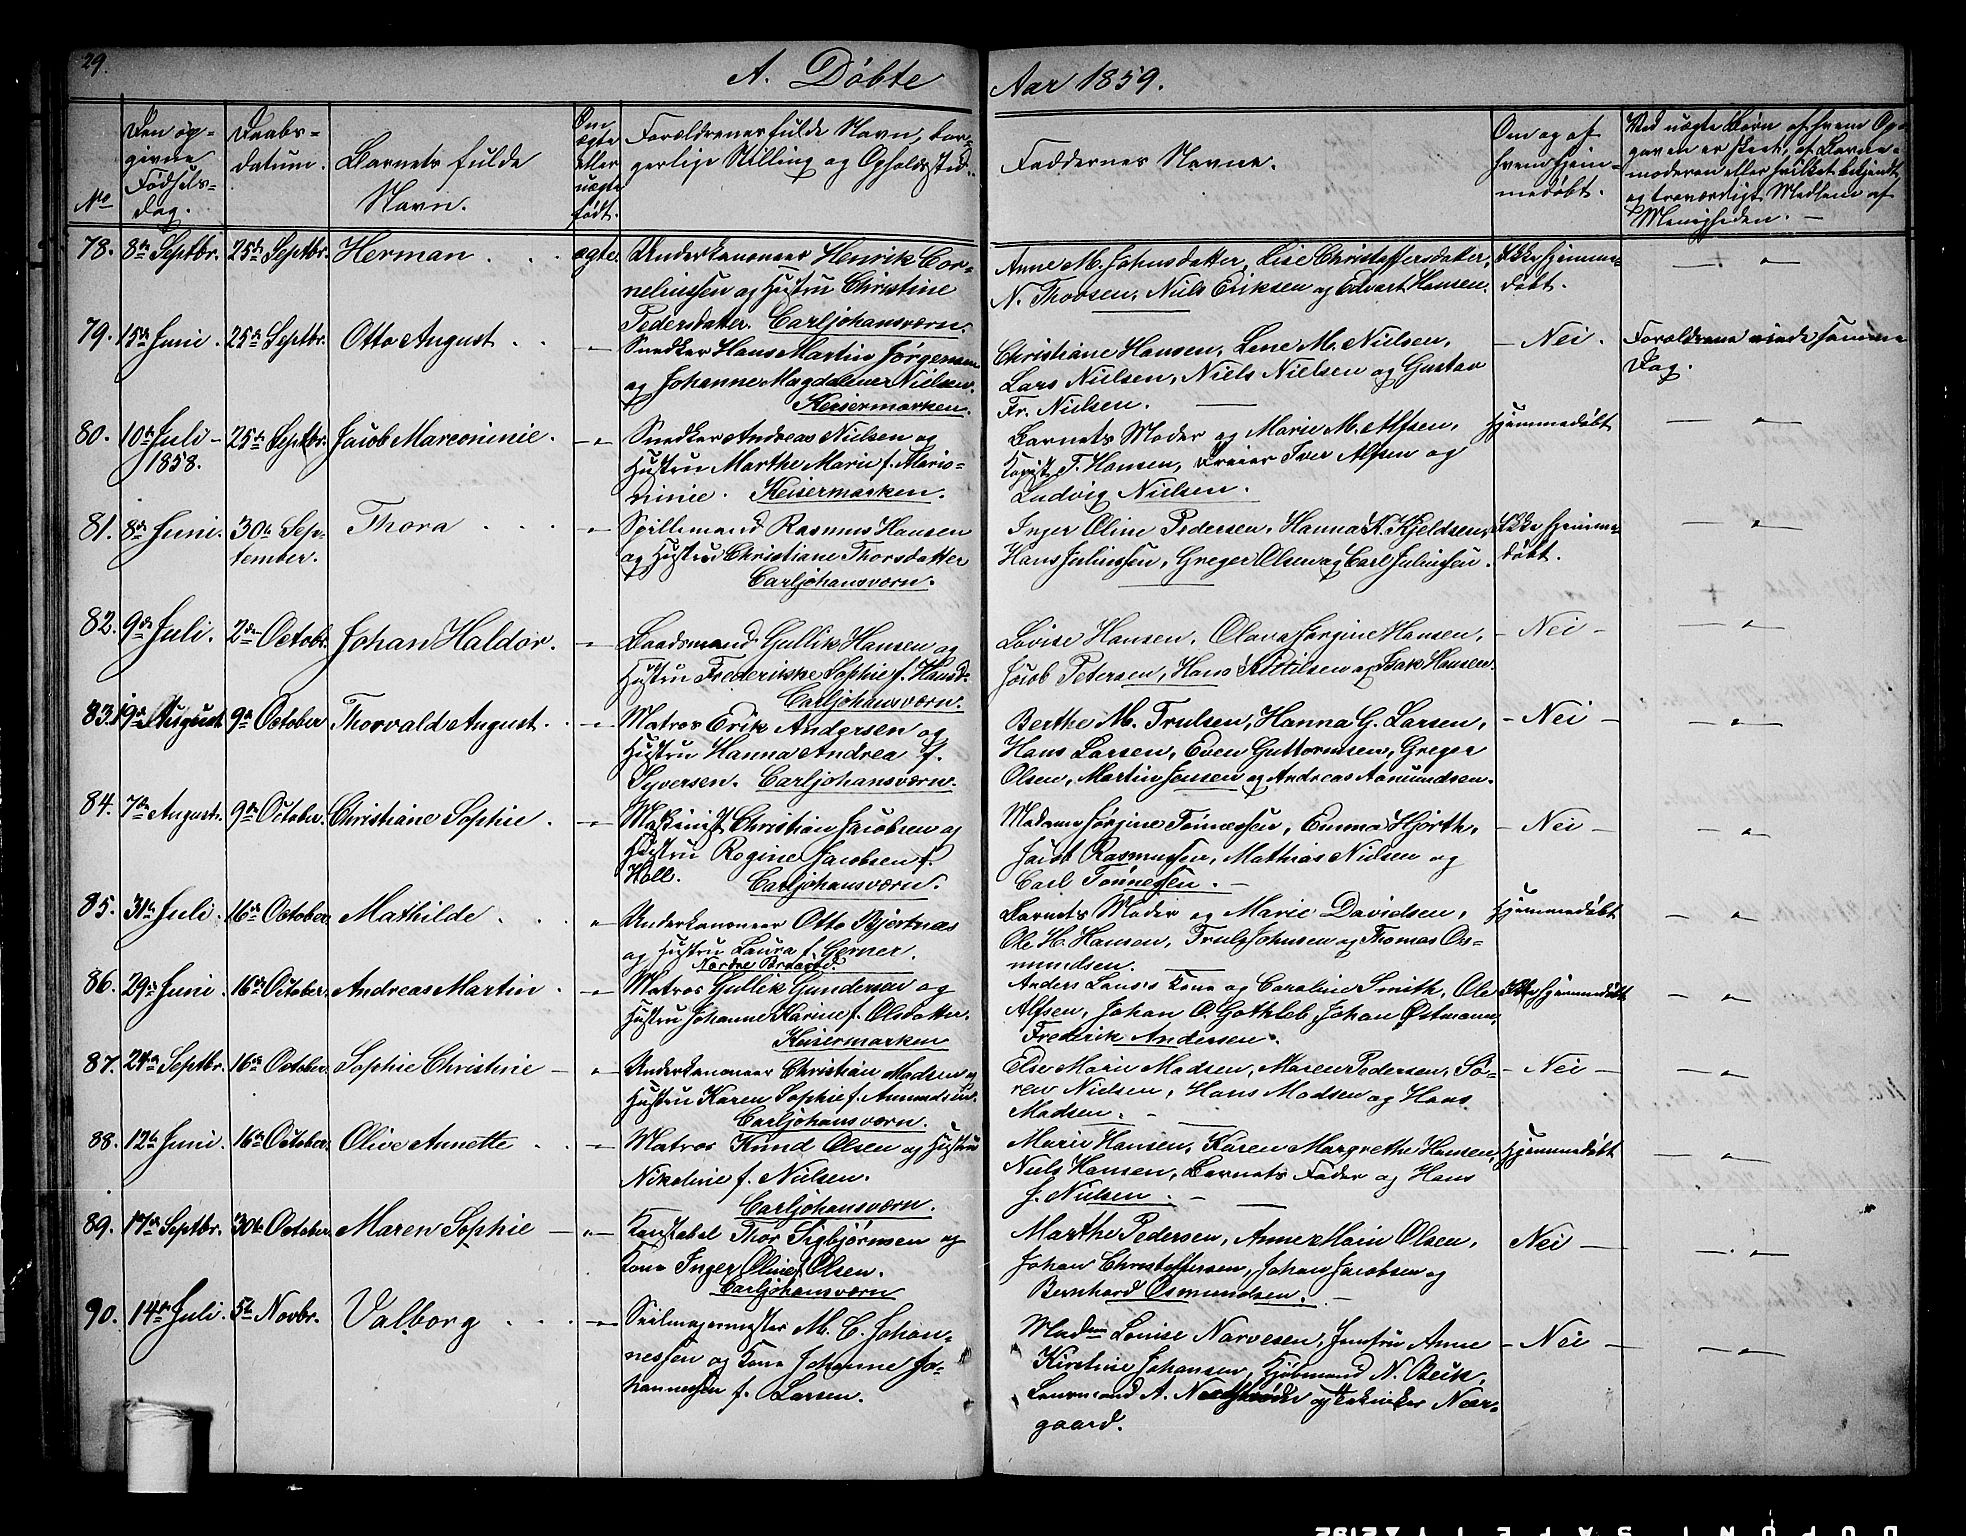 29.
A. Döbte
Aar 1859.
No
Den op-
givne
Födsels-
dag.
Daabs-
datum.
Barnets fulde
Navn.
Om
ægte
eller
uægte
födt.
Forældrenes fulde Navn, bor-
gerlige Stilling og Opholdssted.
Faddernes Navne.
Om og af
hvem hjem-
medöbt.
Ved uægte Börn af hvem Op-
gaven er skeet, af Barne-
moderen eller hvilket bekjendt
og troværdigt Medlem af
Menigheden. —
78. 8de Septbr. 25de Septbr. Herman . . . ægte.
Underkanoneer Henrik Cor-
neliussen og Hustru Christine
Pedersdatter. Carljohansværn.
Anne M. Johnsdatter, Lise Christoffersdatter,
N. Thoosen, Niels Eriksen og Edvart Hansen.
Ikke hjemme-
döbt.
79. 15de Juni. 25de Septbr. Otto August . . — " —
Snedker Hans Martin Jörgensen
og Johanne Magdalene Nielsen.
Keisermarken.
Christiane Hansen, Lene M. Nielsen,
Lars Nielsen, Niels Nielsen og Gustav
Fr. Nielsen. —
— Nei.
Forældrene viede samme
Dag.
80. 10de Juli 25de Septbr. Jacob Marconinie. — " —
1858.
Snedker Andreas Nielsen og
Hustru Marthe Marie f. Marco-
ninie. Keisermarken.
Barnets Moder og Marie M. Alfsen,
Kopist T. Hansen, Dreier Iver Alfsen og
Ludvig Nielsen.
Hjemmedöbt
81. 8de Juni. 30de Sep- Thora . . . — " —
tember.
Spillemand Rasmus Hansen
og Hustru Christiane Thorsdatter
Carljohansværn.
Inger Oline Pedersen, Hanna N. Kjeldsen,
Hans Juliussen, Greger Olsen og Carl Juliussen.
Ikke hjemme-
döbt.
82. 9de Juli. 2den Octobr. Johan Haldor. — " —
Baadsmand Gullik Hansen og
Hustru Frederikke Sophie f. Hansd.
Carljohansværn.
Lovise Hansen, Olava Jørgine Hansen,
Jacob Petersen, Hans Kittilsen og Isak Hansen
— Nei —
83. 19de August 9de October Thorvald August. . — " —
Matros Erik Andersen og
Hustru Hanna Andrea f.
Syversen. Carljohansværn.
Berthe M. Trulsen, Hanna G. Larsen,
Hans Larsen, Even Guttormsen, Greger
Olsen, Martin Jensen og Andreas Aamundsen.
— Nei —
84. 7de August. 9de October. Christiane Sophie . — " —
Maskinist Christian Jacobsen og
Hustru Regine Jacobsen f.
Holl. Carljohansværn.
Madame Jørgine Tönnessen, Emma Hjorth,
Jacob Rasmussen, Mathias Nielsen og
Carl Tönnessen. —
— Nei —
85. 31te Juli 16de October. Mathilde . . . "
Underkanoneer Otto Bjertnæs
og Hustru Laura f. Gerner.
Barnets Moder og Marie Davidsen,
Ole H. Hansen, Truls Johnsen og Thomas Os-
mundsen. —
Hjemmedöbt
86. 29de Juni 16de October. Andreas Martin . — " —
Matros Gullik Gundersen og
Hustru Johanne Karine f. Olsdatter.
Keisermarken
Kone og Caroline Smith, Ole
Alfsen, Johan O. Gothleb, Johan Östmann,
Frederik Andersen.
Ikke hjemmedöbt
87. 24de Septbr. 16de October. Sophie Christine — "
Underkanoneer Christian Madsen og
Hustru Karen Sophie f. Amundsen.
Carljohansværn.
Else Marie Madsen, Maren Pedersen, Sö-
ren Nielsen, Hans Madsen og Hans
Madsen. —
— Nei —
88. 12te Juni 16de October. Olive Annette . . — " —
Matros Knud Olsen og Hustru
Nikoline f. Nielsen.
Carljohansværn.
Marie Hansen, Karen Margrethe Hansen,
Niels Hansen, Barnets Fader og Hans
J. Nielsen. — —
Hjemmedöbt
89. 17de Septbr. 30de October. Maren Sophie — " —
Konstabel Thor Sigbjörnsen og
Kone Inger Oline f. Olsen.
Carljohansværn
Marthe Pedersen, Anne Marie Olsen,
Johan Christoffersen, Johan Jacobsen og
Bernhard Osmundsen. —
Nei —
90. 14de Juli. 5te Novbr. Valborg . . . — " —
Seilmagermester M. C. Johan-
nessen og Kone Johanne Jo-
hannessen f. Larsen.
Madme Louise Narvesen, Jomfru Anne
Kirstine Johansen, Kjöbmand N. Beck,
A.
gaard.
— Nei —